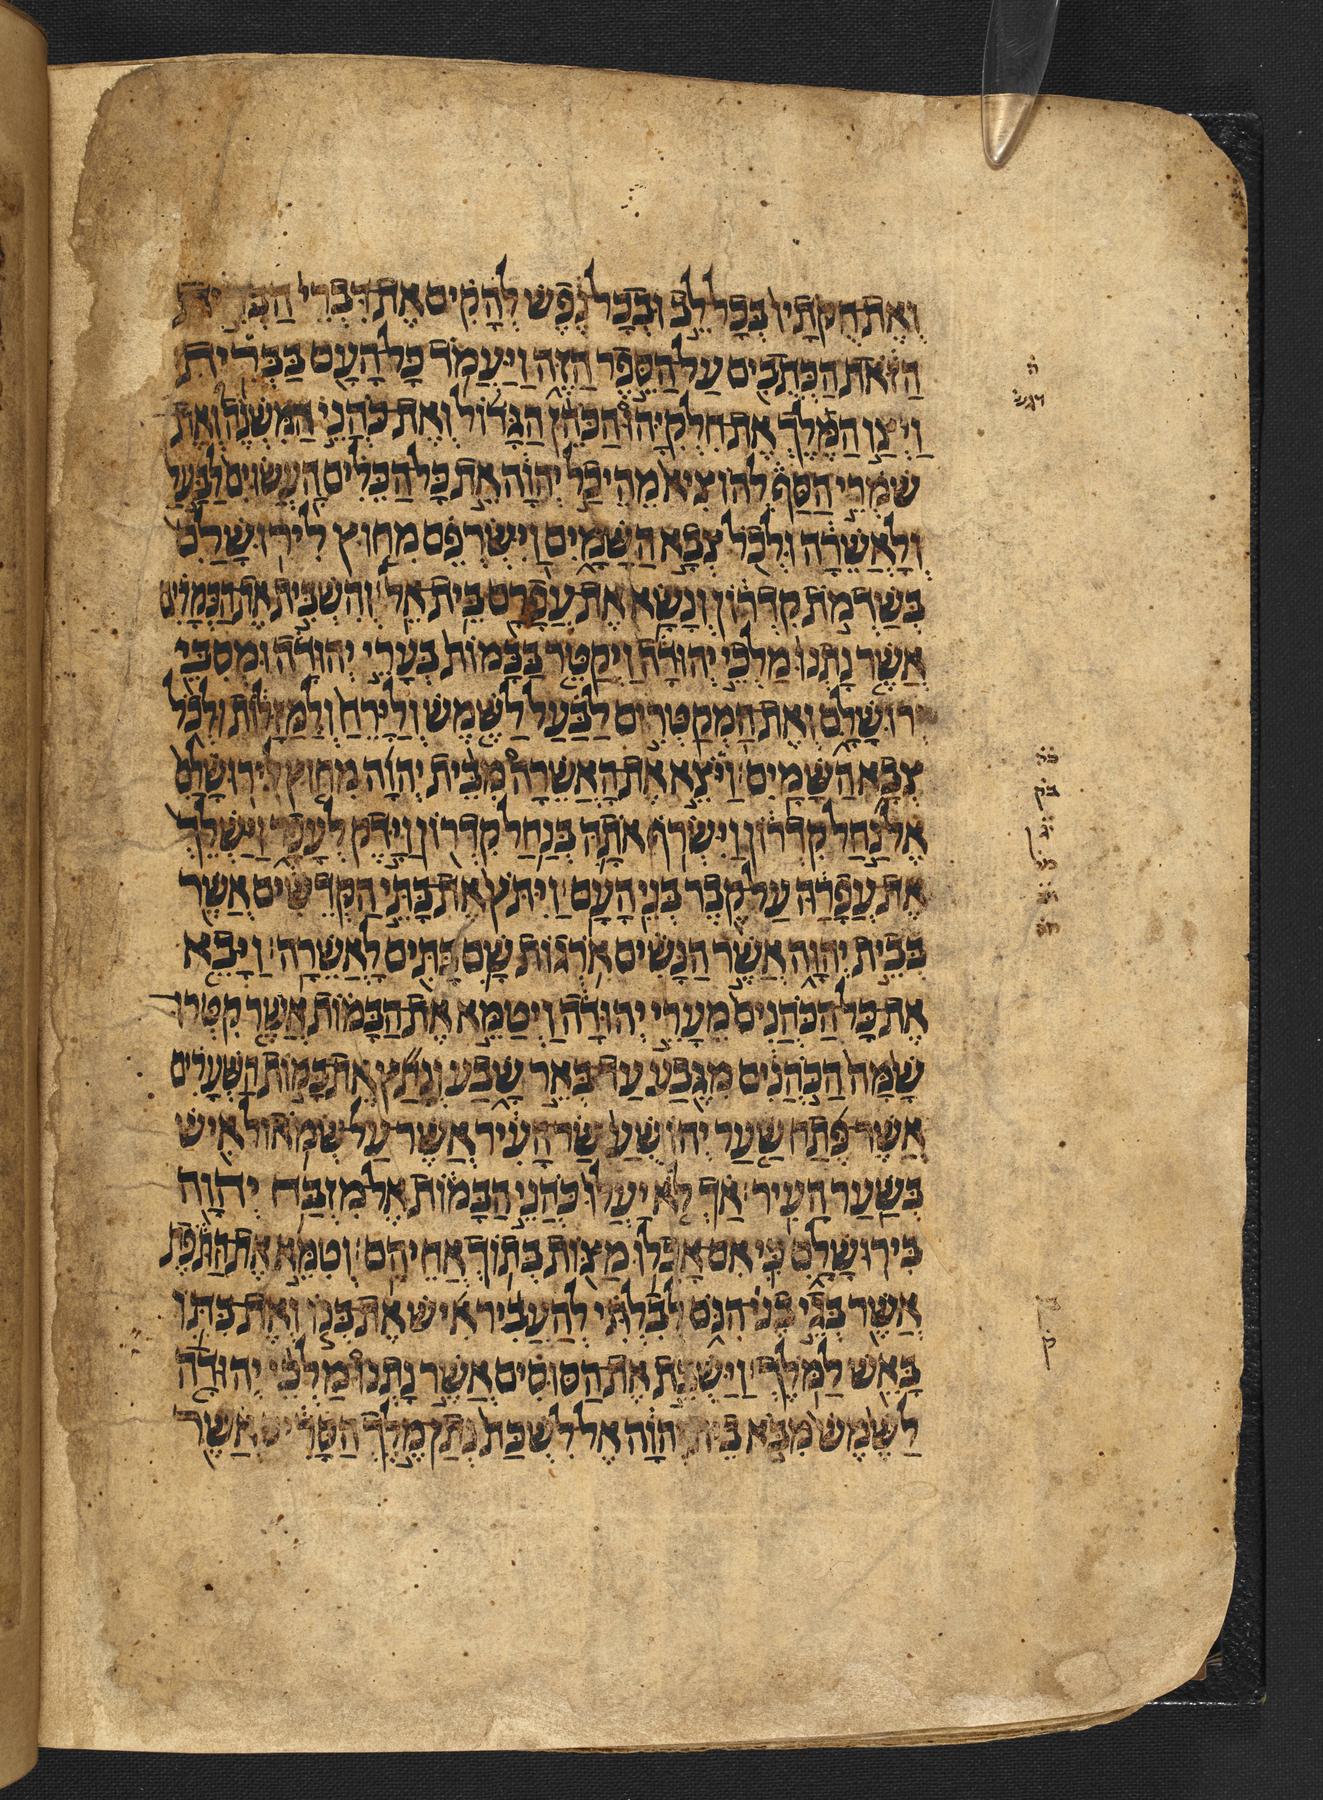 ואת חקתיו בכל לב ובכל נפש להקים את דברי הברית
הזאת הכתבים על הספר הזה ויעמד כל העם בברית
ויצו המלך את חלקיהו הכהן הגדול ואת כהני המשנה ואת
שמרי הסף להוציא מהיכל יהוה את כל הכלים העשוים לבעל
ולאשרה ולכל צבא השמים וישרפם מחוץ לירושלם
בשדמות קדרון ונשא את עפרם בית אל והשבית את הכמרים
אשר נתנו מלכי יהודה ויקטר בבמות בערי יהודה ומסבי
ירושלם ואת המקטרים לבעל לשמש ולירח ולמזלות ולכל
צבא השמים ויצא את האשרה מבית יהוה מחוץ לירושלם
אל נחל קדרון וישרף אתה בנחל קדרון וידק לעפר וישלך
את עפרה על קבר בני העם ויתץ את בתי הקדשים אשר
בבית יהוה אשר הנשים ארגות שם בתים לאשרה ויבא
את כל הכהנים מערי יהודה ויטמא את הבמות אשר קטרו
שמה הכהנים מגבע עד באר שבע ונתץ את במות השערים
אשר פתח שער יהושע שר העיר אשר על שמאול איש
בשער העיר אך לא יעלו כהני הבמות אל מזבח יהוה
בירושלם כי אם אכלו מצות בתוך אחיהם וטמא את התפת
אשר בגי בני הנם לבלתי להעביר איש את בנו ואת בתו
באש למלך וישבת את הסוסים אשר נתנו מלכי יהודה
לשמש מבא בית יהוה אל לשכת נתן מלך הסריס אשר